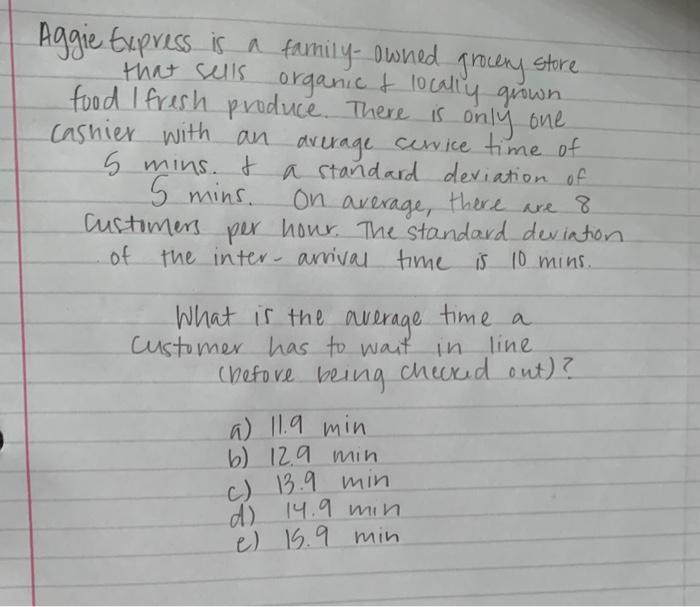 Aggie Express is a family-owned grocery store
that sells organic & locally grown
food / fresh produce. There is only one
cashier with an average service time of
5 mins. & a standard deviation of
5 mins. On average, there are 8
customers per hour. The standard deviation
of the inter-arrival time is 10 mins.
What is the average time a
customer has to wait in line
(before being checked out)?
a) 11.9 min
b) 12.9 min
c) 13.9 min
d) 14.9 min
e) 15.9 min